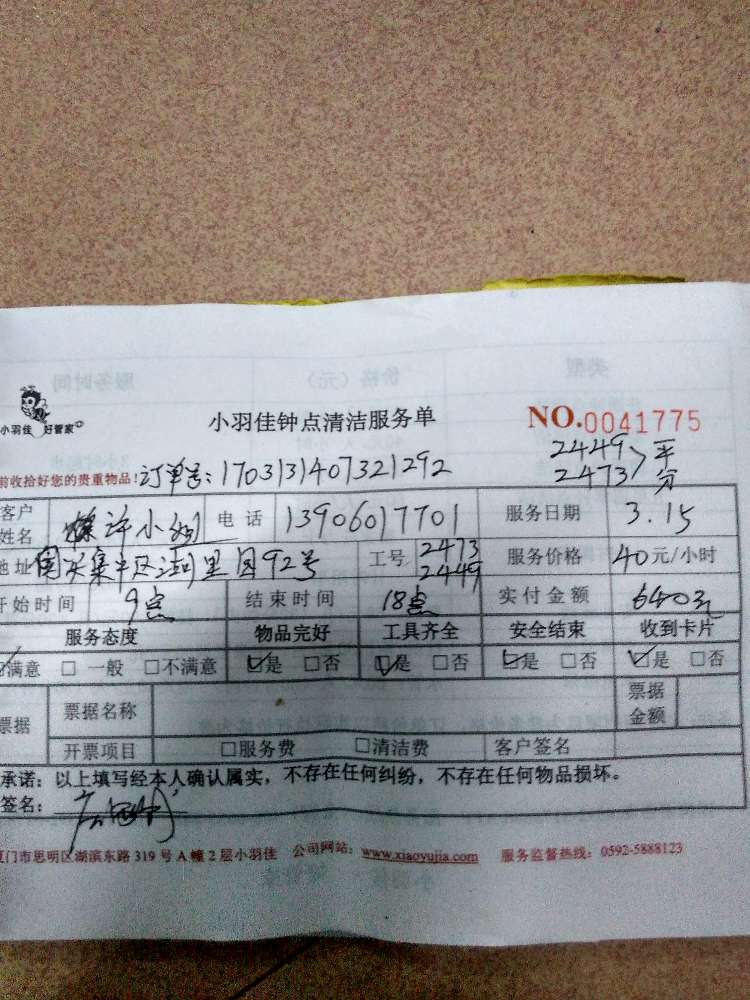 小羽佳 好管家
小羽佳钟点清洁服务单
NO.0041775
前收拾好您的贵重物品！订单号：1703131407321292
2449 平
2473 分
客户姓名 许小姐 电话 13906017701 服务日期 3.15
地址 集 区 里 92号 工号 2473 2449 服务价格 40元/小时
开始时间 9点 结束时间 18点 实付金额 640元
服务态度 物品完好 工具齐全 安全结束 收到卡片
☑满意 □一般 □不满意 ☑是 □否 ☑是 □否 ☑是 □否 ☑是 □否
票据 票据名称 票据金额
开票项目 □服务费 □清洁费 客户签名
承诺：以上填写经本人确认属实，不存在任何纠纷，不存在任何物品损坏。
签名：
厦门市思明区湖滨东路319号A幢2层小羽佳 公司网站：www.xiaoyujia.com 服务监督热线：0592-5888123